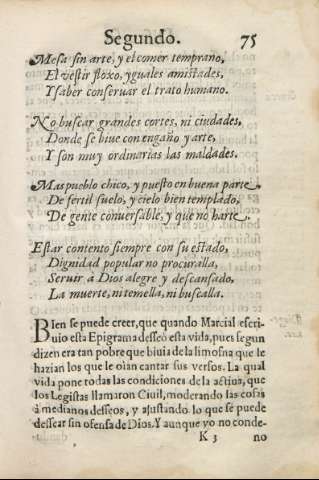 Segundo. 75
Mesa sin arte, y el comer temprano,
El vestir floxo, yguales amistades,
Y saber conseruar el trato humano.
No buscar grandes cortes, ni ciudades,
Donde se biue con engaño y arte,
Y son muy ordinarias las maldades.
Mas pueblo chico, y puesto en buena parte,
De fertil suelo, y cielo bien templado,
De gente conuersable, y que no harte.
Estar contento siempre con su estado,
Dignidad popular no procuralla,
Seruir à Dios alegre y descansado,
La muerte, ni temella, ni buscalla.
Bien se puede creer, que quando Marcial escri-
uio esta Epigrama desseò esta vida, pues segun
dizen era tan pobre que biuia de la limosna que le
hazian los que le oìan cantar sus versos. La qual
vida pone todas las condiciones de la actiua, que
los Legistas llamaron Ciuil, moderando las cosas
à medianos desseos, y ajustando lo que se puede
dessear sin ofensa de Dios. Y aunque yo no conde-
K 3 no